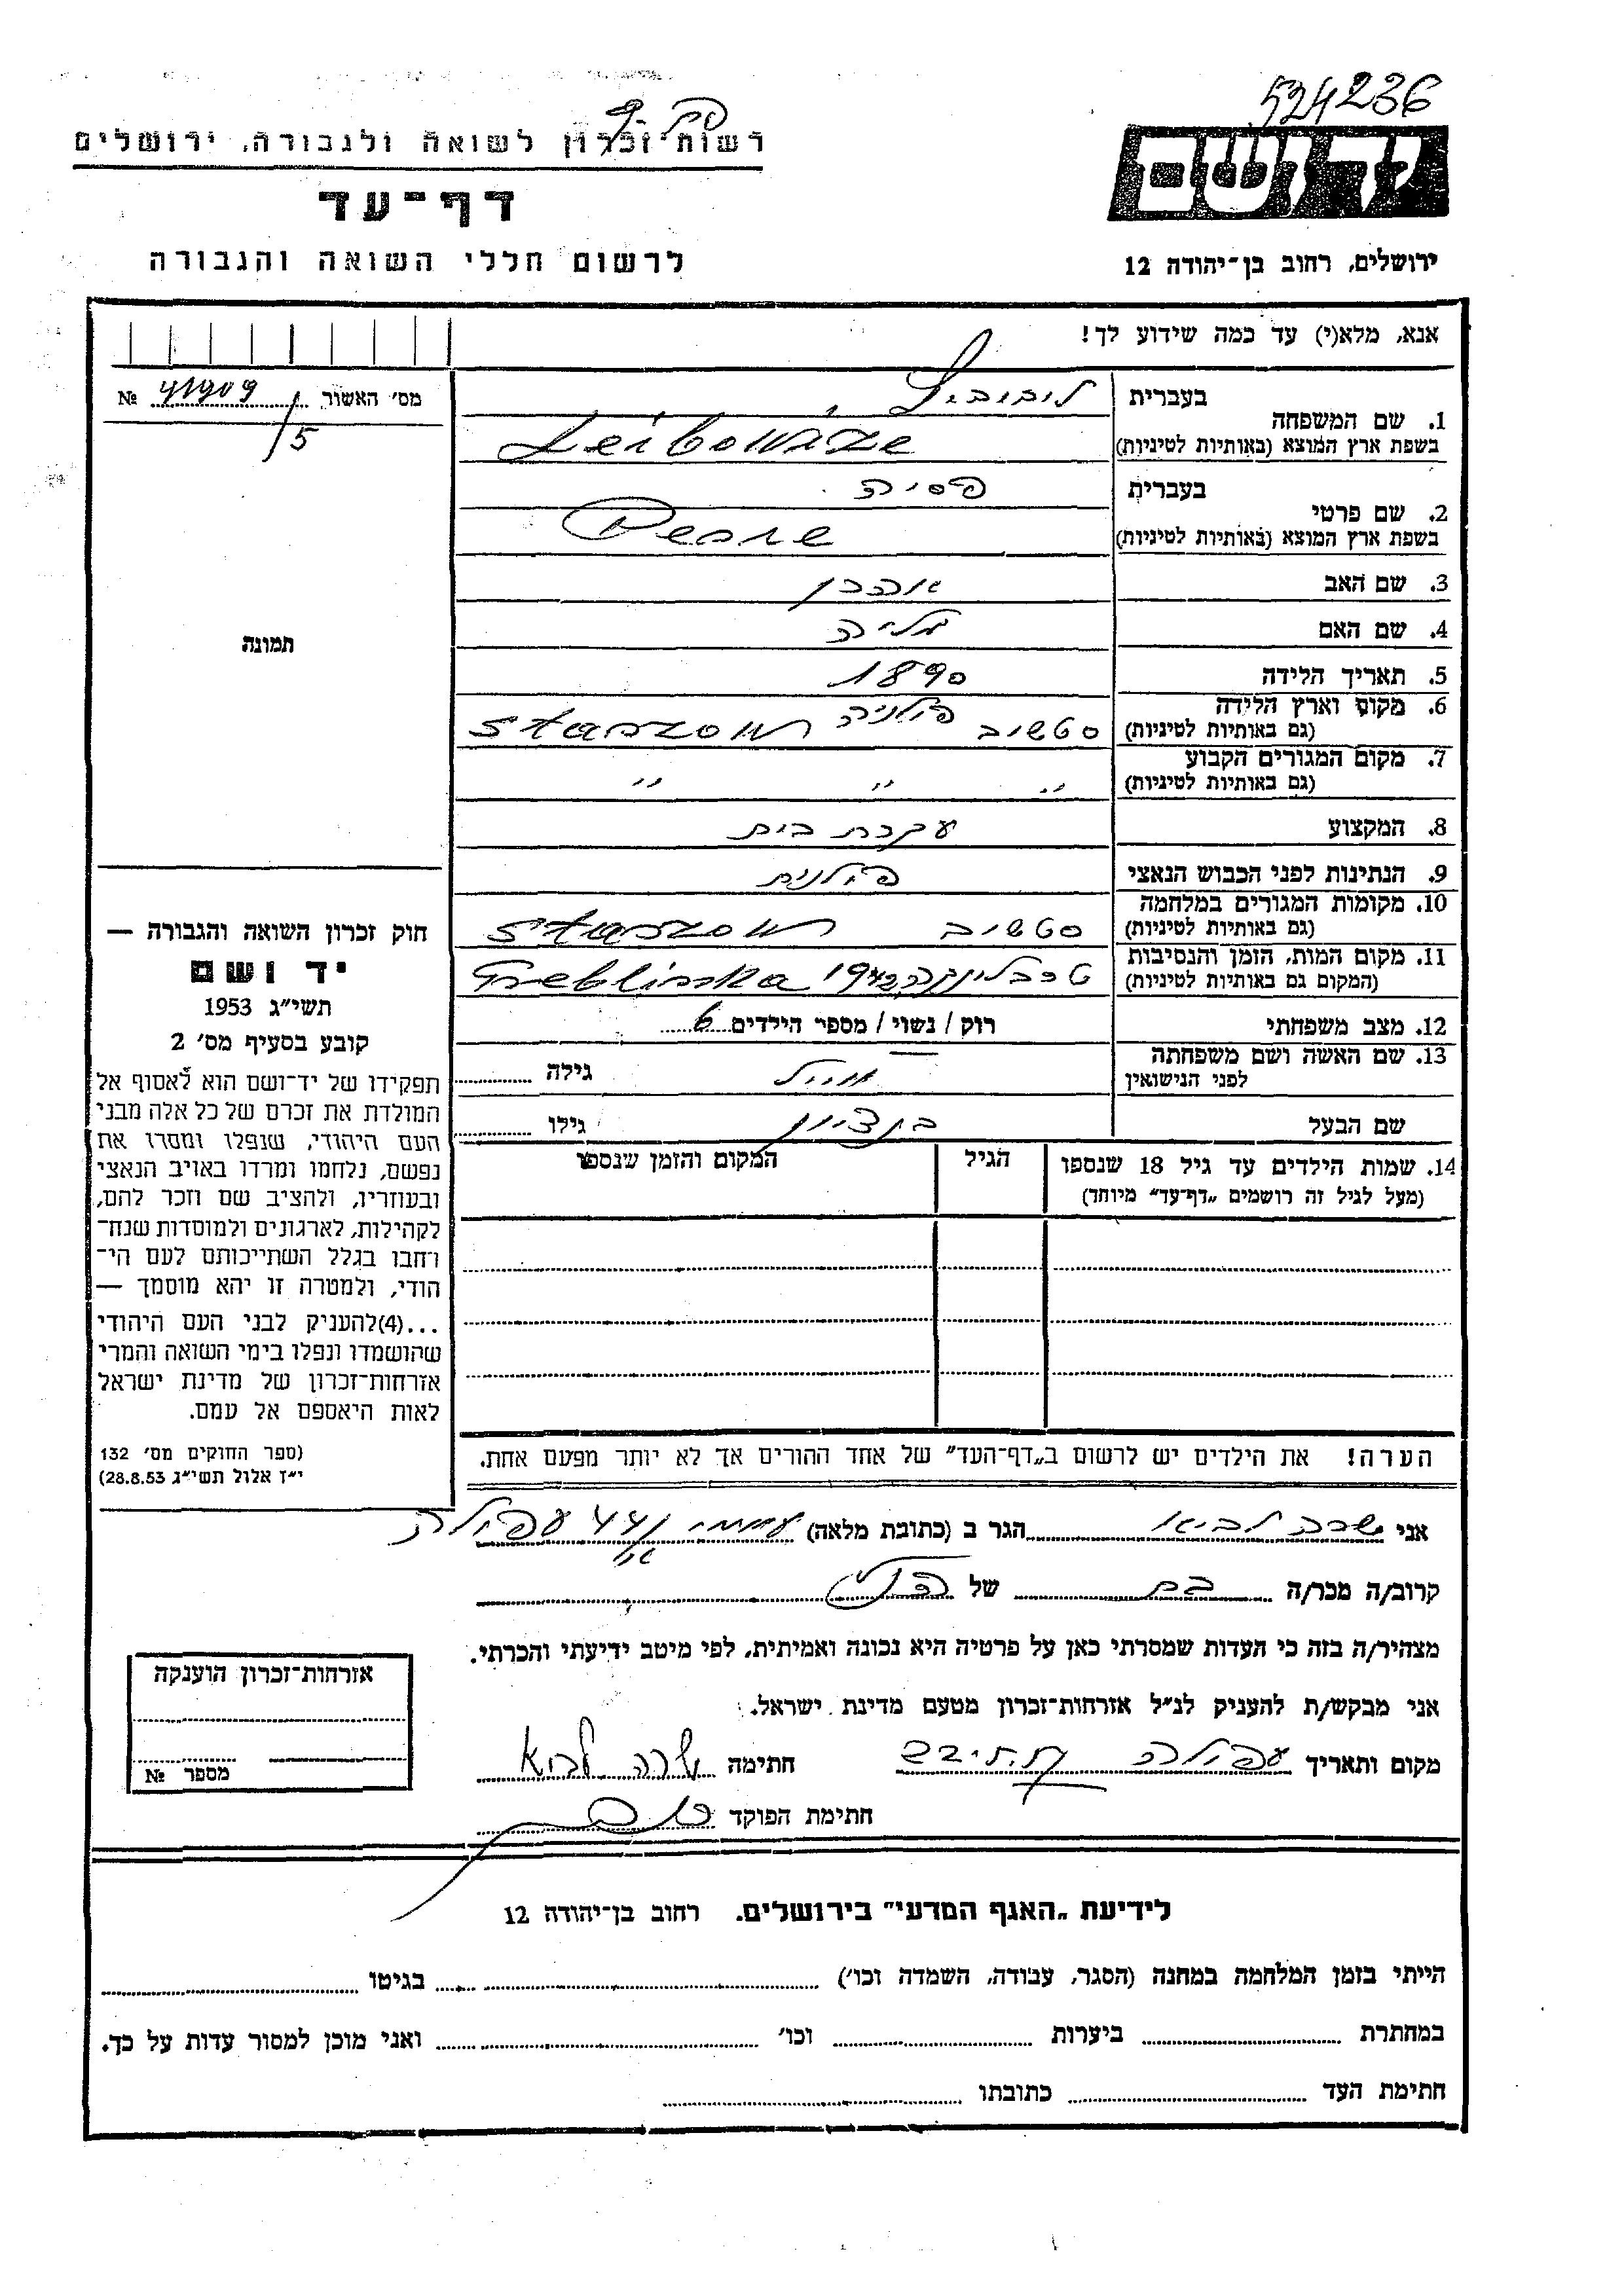 524236
רשות־זכרון לשואה ולגבורה, ירושלים
יד ושם
דף־עד
לרשום חללי השואה והגבורה
ירושלים, רחוב בן־יהודה 12
אנא, מלא(י) עד כמה שידוע לך!
מס׳ האשור 41909 №
/5
תמונה
1. שם המשפחה
בעברית ליבוביץ
בשפת ארץ המוצא (באותיות לטיניות) Leibowicze
2. שם פרטי
בעברית פסיה
בשפת ארץ המוצא (באותיות לטיניות)
3. שם האב אהרן
4. שם האם
5. תאריך הלידה 1890
6. מקום וארץ הלידה
(גם באותיות לטיניות) סטשוב פולניה Staszow
7. מקום המגורים הקבוע
(גם באותיות לטיניות) ״ ״ ״
8. המקצוע עקרת בית
9. הנתינות לפני הכבוש הנאצי פולנית
10. מקומות המגורים במלחמה
(גם באותיות לטיניות) סטשוב Staszow
11. מקום המות, הזמן והנסיבות
(המקום גם באותיות לטיניות) טרבלינקה 1942 Treblinka
12. מצב משפחתי רוק / נשוי / מספר הילדים 6
13. שם האשה ושם משפחתה
לפני הנישואין גילה
שם הבעל בן ציון גילו
14. שמות הילדים עד גיל 18 שנספו
(מעל לגיל זה רושמים „דף־עד״ מיוחד)
הגיל
המקום והזמן שנספו
הערה! את הילדים יש לרשום ב„דף־העד״ של אחד ההורים אך לא יותר מפעם אחת.
חוק זכרון השואה והגבורה —
יד ושם
תשי״ג 1953
קובע בסעיף מס׳ 2
תפקידו של יד־ושם הוא לאסוף אל
המולדת את זכרם של כל אלה מבני
העם היהודי, שנפלו ומסרו את
נפשם, נלחמו ומרדו באויב הנאצי
ובעוזריו, ולהציב שם וזכר להם,
לקהילות, לארגונים ולמוסדות שנח־
רחבו בגלל השתייכותם לעם הי־
הודי, ולמטרה זו יהא מוסמך —
...(4)להעניק לבני העם היהודי
שהושמדו ונפלו בימי השואה והמרי
אזרחות־זכרון של מדינת ישראל
לאות היאספם אל עמם.
(ספר החוקים מס׳ 132
י״ז אלול תשי״ג 28.8.53)
אני שרה לביא הגר ב (כתובת מלאה) עפולה
קרוב/ה מכר/ה בת של הנ״ל
מצהיר/ה בזה כי העדות שמסרתי כאן על פרטיה היא נכונה ואמיתית, לפי מיטב ידיעתי והכרתי.
אני מבקש/ת להעניק לנ״ל אזרחות־זכרון מטעם מדינת ישראל.
מקום ותאריך עפולה חתימה שרה לביא
חתימת הפוקד
אזרחות־זכרון הוענקה
מספר №
לידיעת „האגף המדעי״ בירושלים. רחוב בן־יהודה 12
הייתי בזמן המלחמה במחנה (הסגר, עבודה, השמדה וכו׳) בגיטו
במחתרת ביערות וכו׳ ואני מוכן למסור עדות על כך.
חתימת העד כתובתו